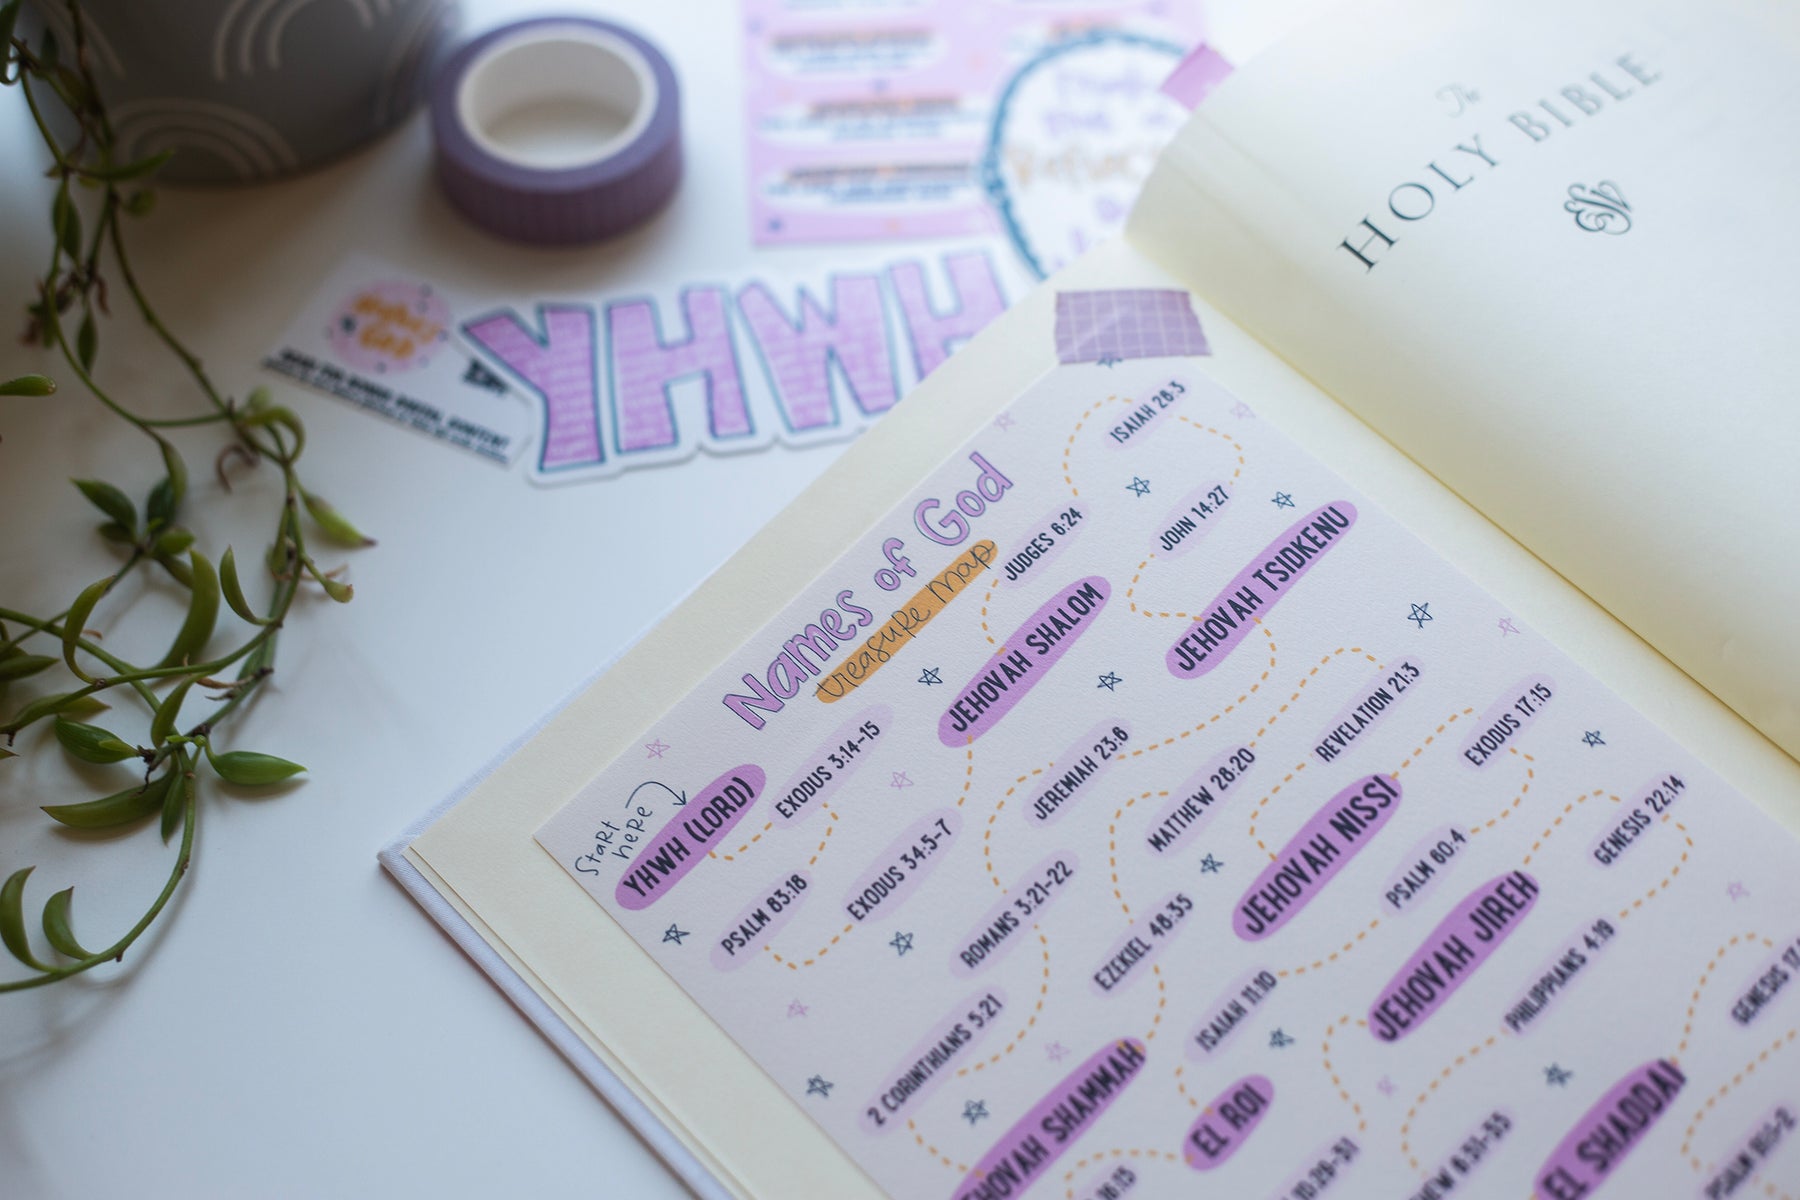 The
HOLY BIBLE
ESV
YHWH
Names of God
treasure map
Start
here
YHWH (LORD)
EXODUS 3:14-15
PSALM 83:18
EXODUS 34:5-7
JEHOVAH SHALOM
JUDGES 6:24
ISAIAH 26:3
JOHN 14:27
JEHOVAH TSIDKENU
JEREMIAH 23:6
ROMANS 3:21-22
2 CORINTHIANS 5:21
JEHOVAH SHAMMAH
EZEKIEL 48:35
MATTHEW 28:20
REVELATION 21:3
JEHOVAH NISSI
EXODUS 17:15
PSALM 60:4
ISAIAH 11:10
EL ROI
JEHOVAH JIREH
GENESIS 22:14
PHILIPPIANS 4:19
EL SHADDAI
GENESIS 17:
6:31-33
10:29-31
16:13